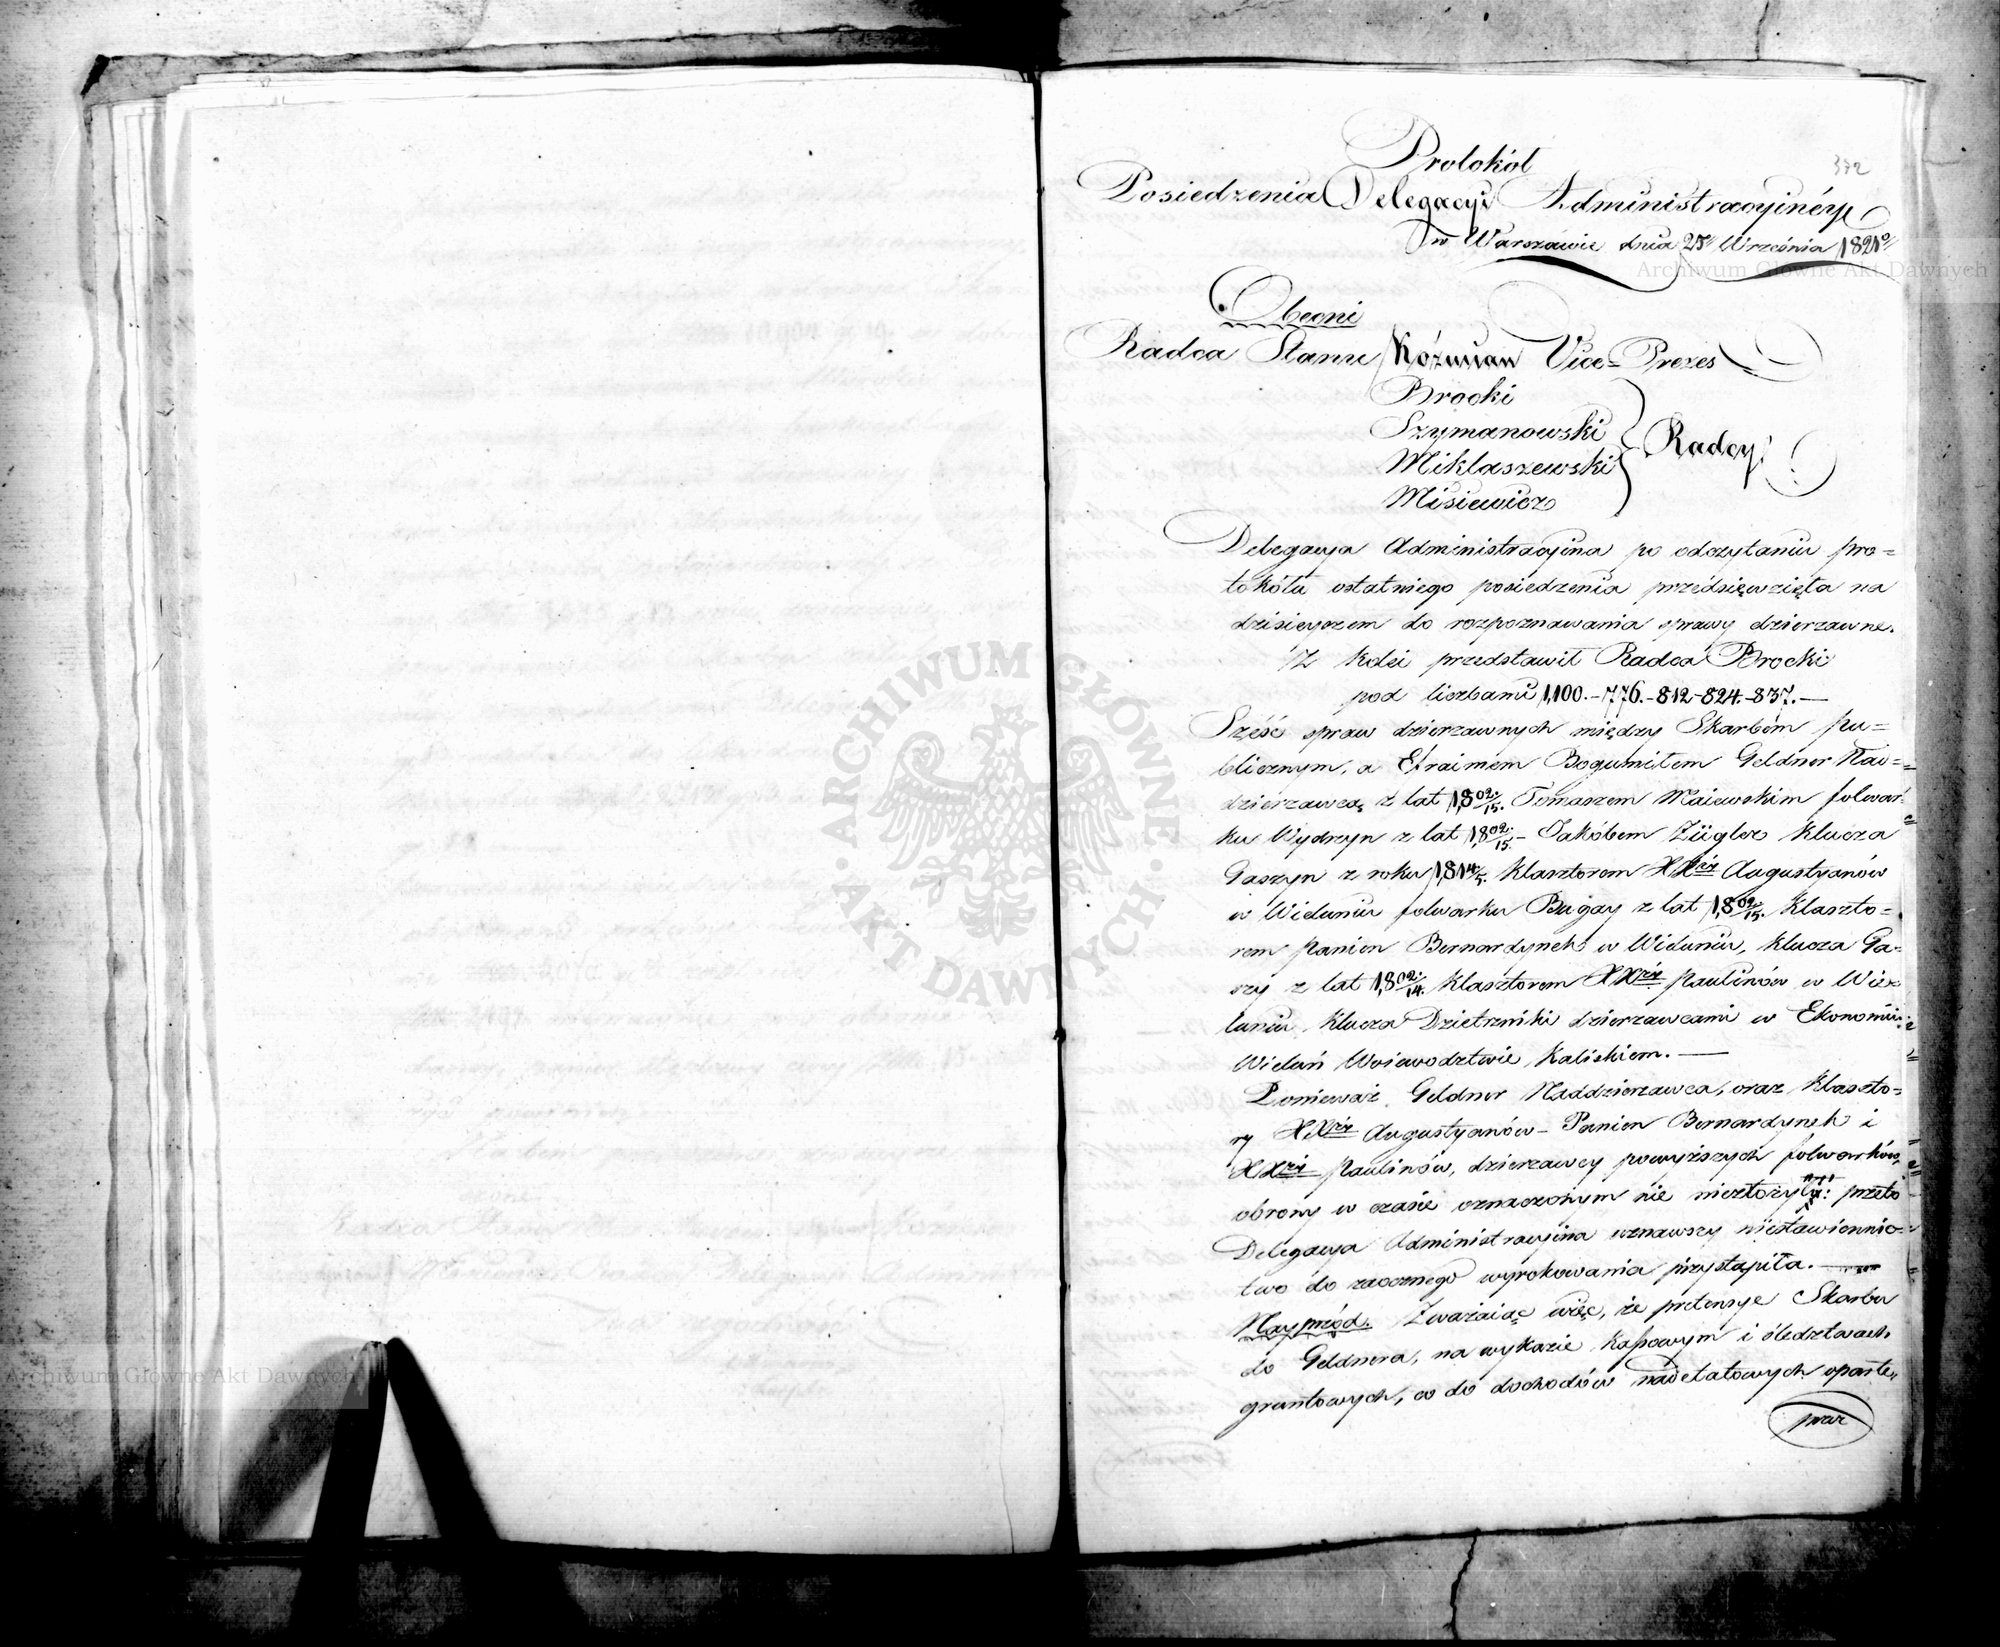 372
Protokół
Posiedzenia Delegacyi Administracyinéy
w Warszawie dnia 25 Września 1821
Obecni
Radca Stanu Koźmian Vice-Prezes
Brocki
Szymanowski
Miklaszewski
Misiewicz
Radcy
Delegacya Administracyina po odczytaniu pro=
tokółu ostatniego posiedzenia przedsięwzięta na
dzisieyszem do rozpoznawania sprawy dzierzawne.
Z kolei przedstawił Radca Brocki
pod liczbami 1,100.-776.-812-824.-837.—
Sześć spraw dzierzawnych między Skarbem pu=
blicznym, a Efraimem Bogumiłem Geldner Nad=
dzierzawcą z lat 1,802/15. Tomaszem Maiewskim folwar=
ku Wydrzyn z lat 1,802/15.- Jakóbem Zügler Klucza
Gaszyn z roku 1,814/5. Klasztorem XXży Augustyanów
w Wieluniu folwarku Bugay z lat 1,802/15. Klaszto=
rem Panien Bernardynek w Wieluniu, Klucza Ga=
szy z lat 1,802/14. Klasztorem XXży Paulinów w Wie=
luniu, Klucza Dzietrzniki dzierzawcami w Ekonomii
Wieluń Woiewodztwie Kaliskiem.—
Ponieważ Geldner Naddzierzawca, oraz Klaszto=
ry XXży Augustyanów- Panien Bernardynek i
XXży Paulinów, dzierzawcy powyższych folwarków,
obrony w czasie oznaczonym nie niezłożyły: przeto
Delegacya Administracyina uznawszy niestawiennic=
two do zaocznego wyrokowania przystąpiła.—
Nayprzód. Zważaiąc więc, że pretensye Skarbu
do Geldnera, na wykazie Kassowym i śledztwach
gruntowych, co do dochodów nadetatowych oparte,
praw
Archiwum Główne Akt Dawnych
ARCHIWUM GŁÓWNE AKT DAWNYCH
Archiwum Główne Akt Dawnych